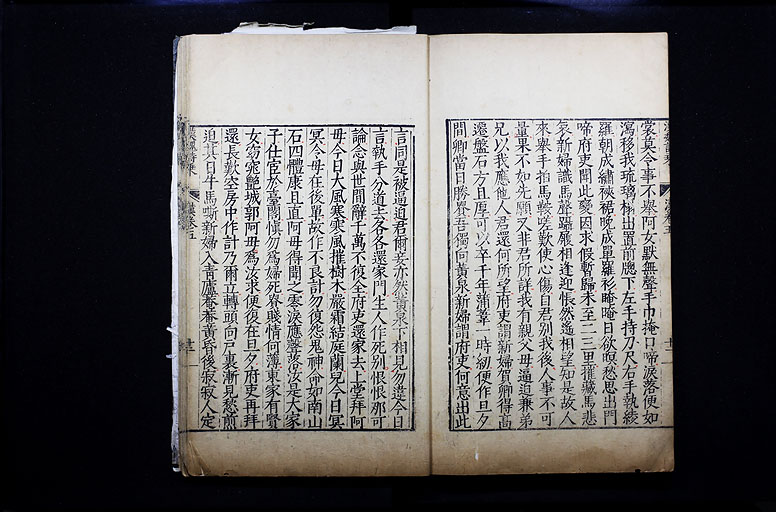 裳莫令事不舉阿女默無聲手巾掩口啼淚落便如
瀉移我琉璃榻出置前牕下左手持刀尺右手執綾
羅朝成繡裌裙晚成單羅衫晻晻日欲暝愁思出門
啼府吏聞此變因求假暫歸未至二三里摧藏馬悲
哀新婦識馬聲躡履相逢迎悵然遙相望知是故人
來舉手拍馬鞍嗟歎使心傷自君別我後人事不可
量果不如先願又非君所詳我有親父母逼迫兼弟
兄以我應他人君還何所望府吏謂新婦賀卿得高
遷盤石方且厚可以卒千年蒲葦一時紉便作旦夕
間卿當日勝貴吾獨向黃泉新婦謂府吏何意出此
言同是被逼迫君爾妾亦然黃泉下相見勿違今日
言執手分道去各各還家門生人作死別恨恨那可
論念與世間辭千萬不復全府吏還家去上堂拜阿
母今日大風寒寒風摧樹木嚴霜結庭蘭兒今日冥
冥令母在後單故作不良計勿復怨鬼神命如南山
石四體康且直阿母得聞之零淚應聲落汝是大家
子仕宦於臺閣慎勿爲婦死貴賤情何薄東家有賢
女窈窕艷城郭阿母爲汝求便復在旦夕府吏再拜
還長歎空房中作計乃爾立轉頭向戶裏漸見愁煎
迫其日牛馬嘶新婦入青廬菴菴黃昏後寂寂人定